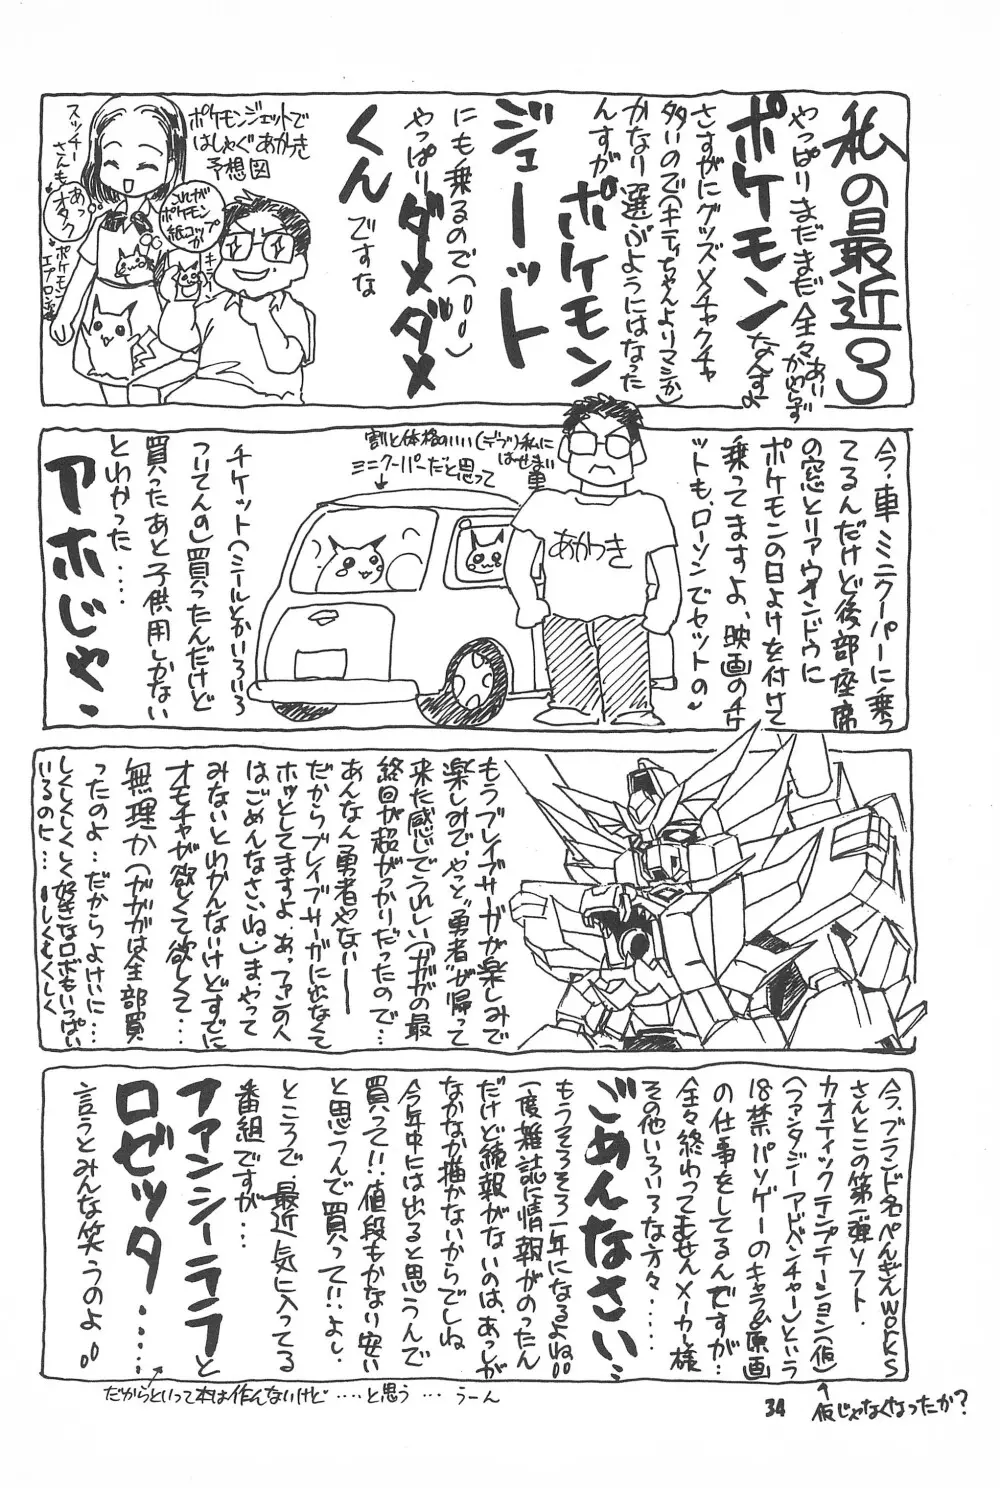 私の最近3
やっぱりまだまだ全々あいかわらず
ポケモンなんすよ
さすがにグッズメチャクチャ
多いので(キティちゃんよりマシか)
かなり選ぶようにはなった
んすが ポケモン
ジェーット
にも乗るので(^o^)
やっぱりダメダメ
くん ですな
ポケモンジェットで
はしゃぐあかつき
予想図
コレが
ポケモン
紙コップ
かっ
キラーン
あっ
オタク
スッチー
さんも
ポケモン
エプロン
今・車 ミニクーパーに乗っ
てるんだけど後部座席
の窓とリアウインドウに
ポケモンの日よけを付けて
乗ってますよ、映画のチケ
ットも、ローソンでセットの〜
割と体格のいい(デブ)私に
はせまい
車
ミニクーパーだと思って
あかつき
チケット(シールとかいろいろ
ついてんの)買ったんだけど
買ったあと子供用しかない
とわかった・・・・
アホじゃ・
もうブレイブサーガが楽しみで
楽しみで・やっと"勇者"が帰って
来た感じでうれしい(ガガガの最
終回が超がっかりだったので…
あんなん勇者やない――
だからブレイブサーガに出なくて
ホッとしてますよ・あっファンの人
はごめんなさいね)ま、やって
みないとわかんないけどすでに
オモチャが欲しくて欲しくて…
無理か(ガガガは全部買
ったのよ…だからよけいに…
しくしくしく好きなロボもいっぱい
いるのに…しくしくしく
今、ブランド名ぺんぎんworks
さんとこの第一弾ソフト・
カオティックテンプテーション(仮)
(ファンタジーアドベンチャー)という
18禁パソゲーのキャラ&原画
の仕事をしてるんですが…
全々終わってませんメーカー様
その他いろいろな方々・・・・
ごめんなさい…
もうそろそろ一年になるよねo0
一度雑誌に情報がのったん
だけど続報がないのは、あっしが
なかなか描かないからでしね
今年中には出ると思うんで
買って!!値段もかない安い
と思うんで買って!!よし
ところで、最近気に入ってる
番組ですが…
ファンシーララと
ロゼッタ・・・・
言うとみんな笑うのよo0
だからといって本は作んないけど ・・・・と思う ・・・ うーん
34
仮じゃなくなったか?